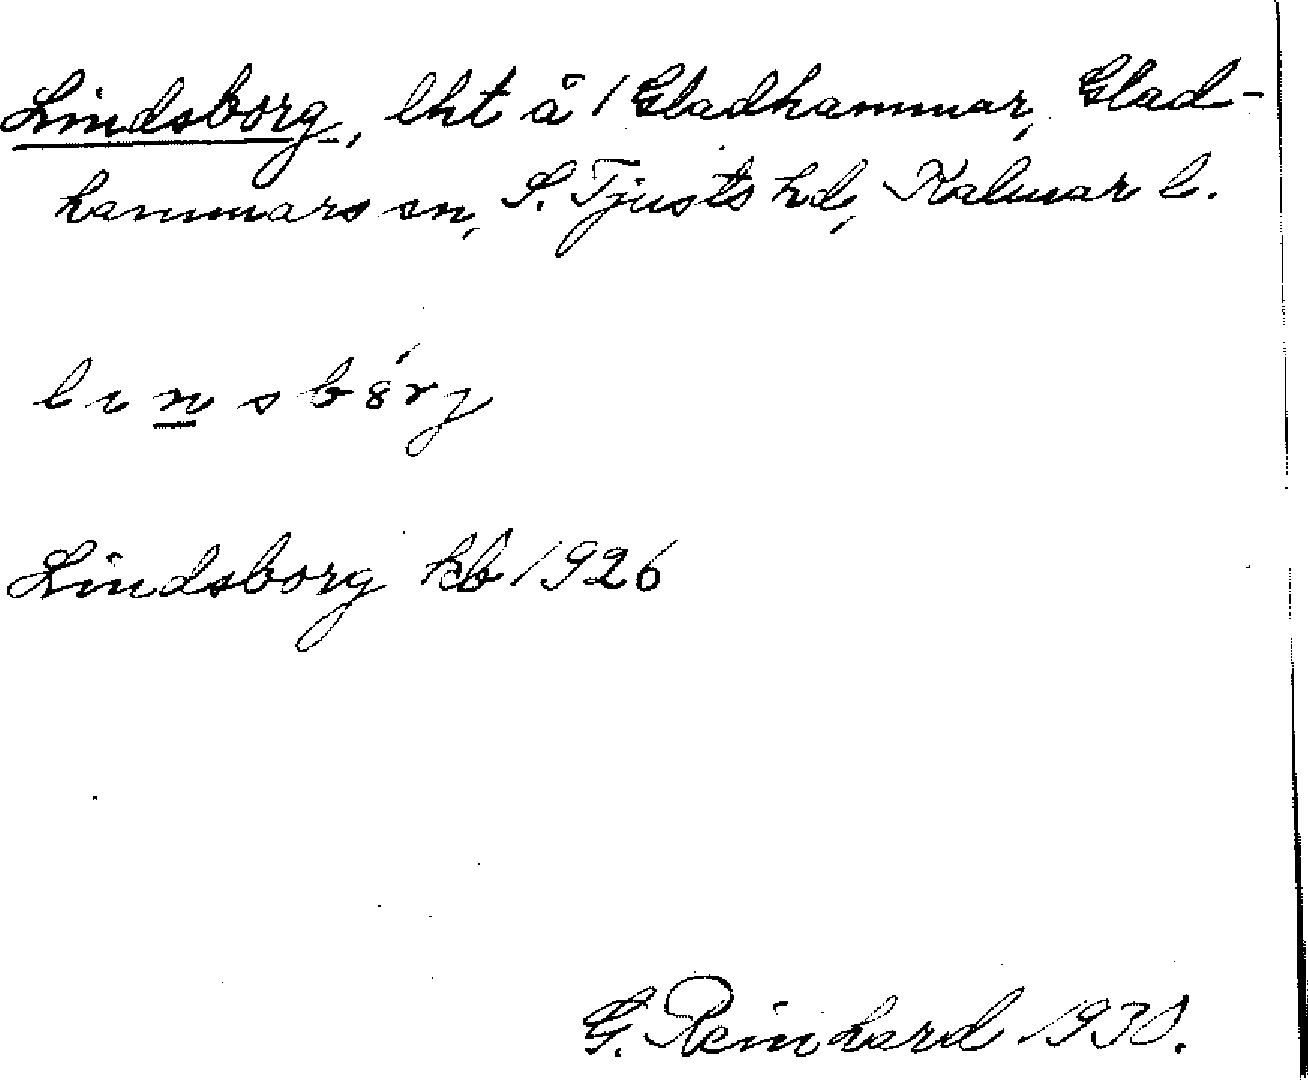 Lindsborg, lht å 1 Gladhammar, Glad-
hammars sn, S. Tjusts hd, Kalmar l.
lınsbórj
Lindsborg kb 1926
G. Reinhard 1930.